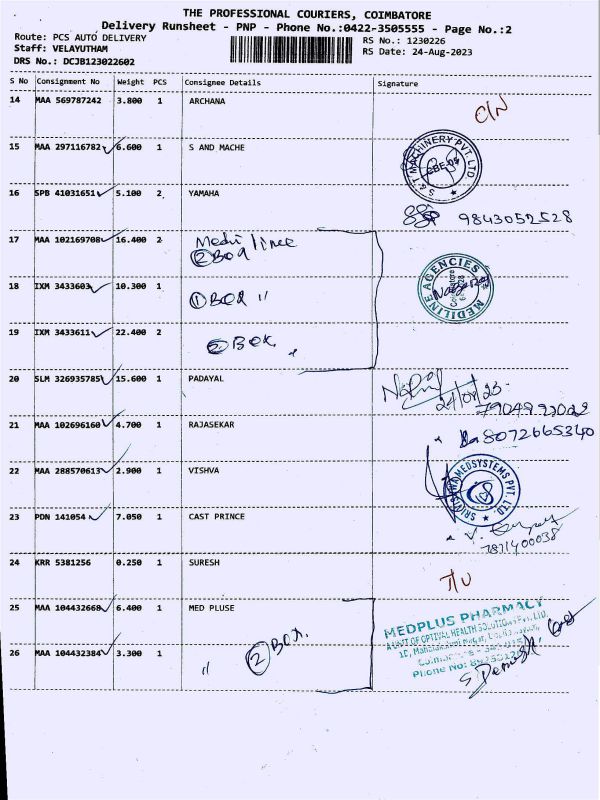 THE PROFESSIONAL COURIERS, COIMBATORE
Delivery Runsheet - PNP - Phone No.:0422-3505555 - Page No.:2
Route: PCS AUTO DELIVERY
Staff: VELAYUTHAM
DRS No.: DCJB123022602
RS No.: 1230226
RS Date: 24-Aug-2023
S No Consignment No Weight PCS Consignee Details Signature
14 MAA 569787242 3.800 1 ARCHANA
C/N
15 MAA 297116782 6.600 1 S AND MACHE
S & T MACHINERY PVT. LTD
CBE-05
16 SPB 41031651 5.100 2 YAMAHA
9843052528
17 MAA 102169708 16.400 2 Medi linee
2 Box
18 IXM 3433603 10.300 1 1 Box "
MEDILINE AGENCIES
19 IXM 3433611 22.400 2 2 Box
20 SLM 326935785 15.600 1 PADAYAL
24/08/23
21 MAA 102696160 4.700 1 RAJASEKAR
8072665340
22 MAA 288570613 2.900 1 VISHVA
MEDSYSTEMS PVT. LTD.
23 PDN 141054 7.050 1 CAST PRINCE
7871400038
24 KRR 5381256 0.250 1 SURESH
25 MAA 104432668 6.400 1 MED PLUSE
MEDPLUS PHARMACY
A UNIT OF OPTIVAL HEALTH SOLUTIONS Pvt. Ltd.
Phone No:
26 MAA 104432384 3.300 1 " 2 Box.